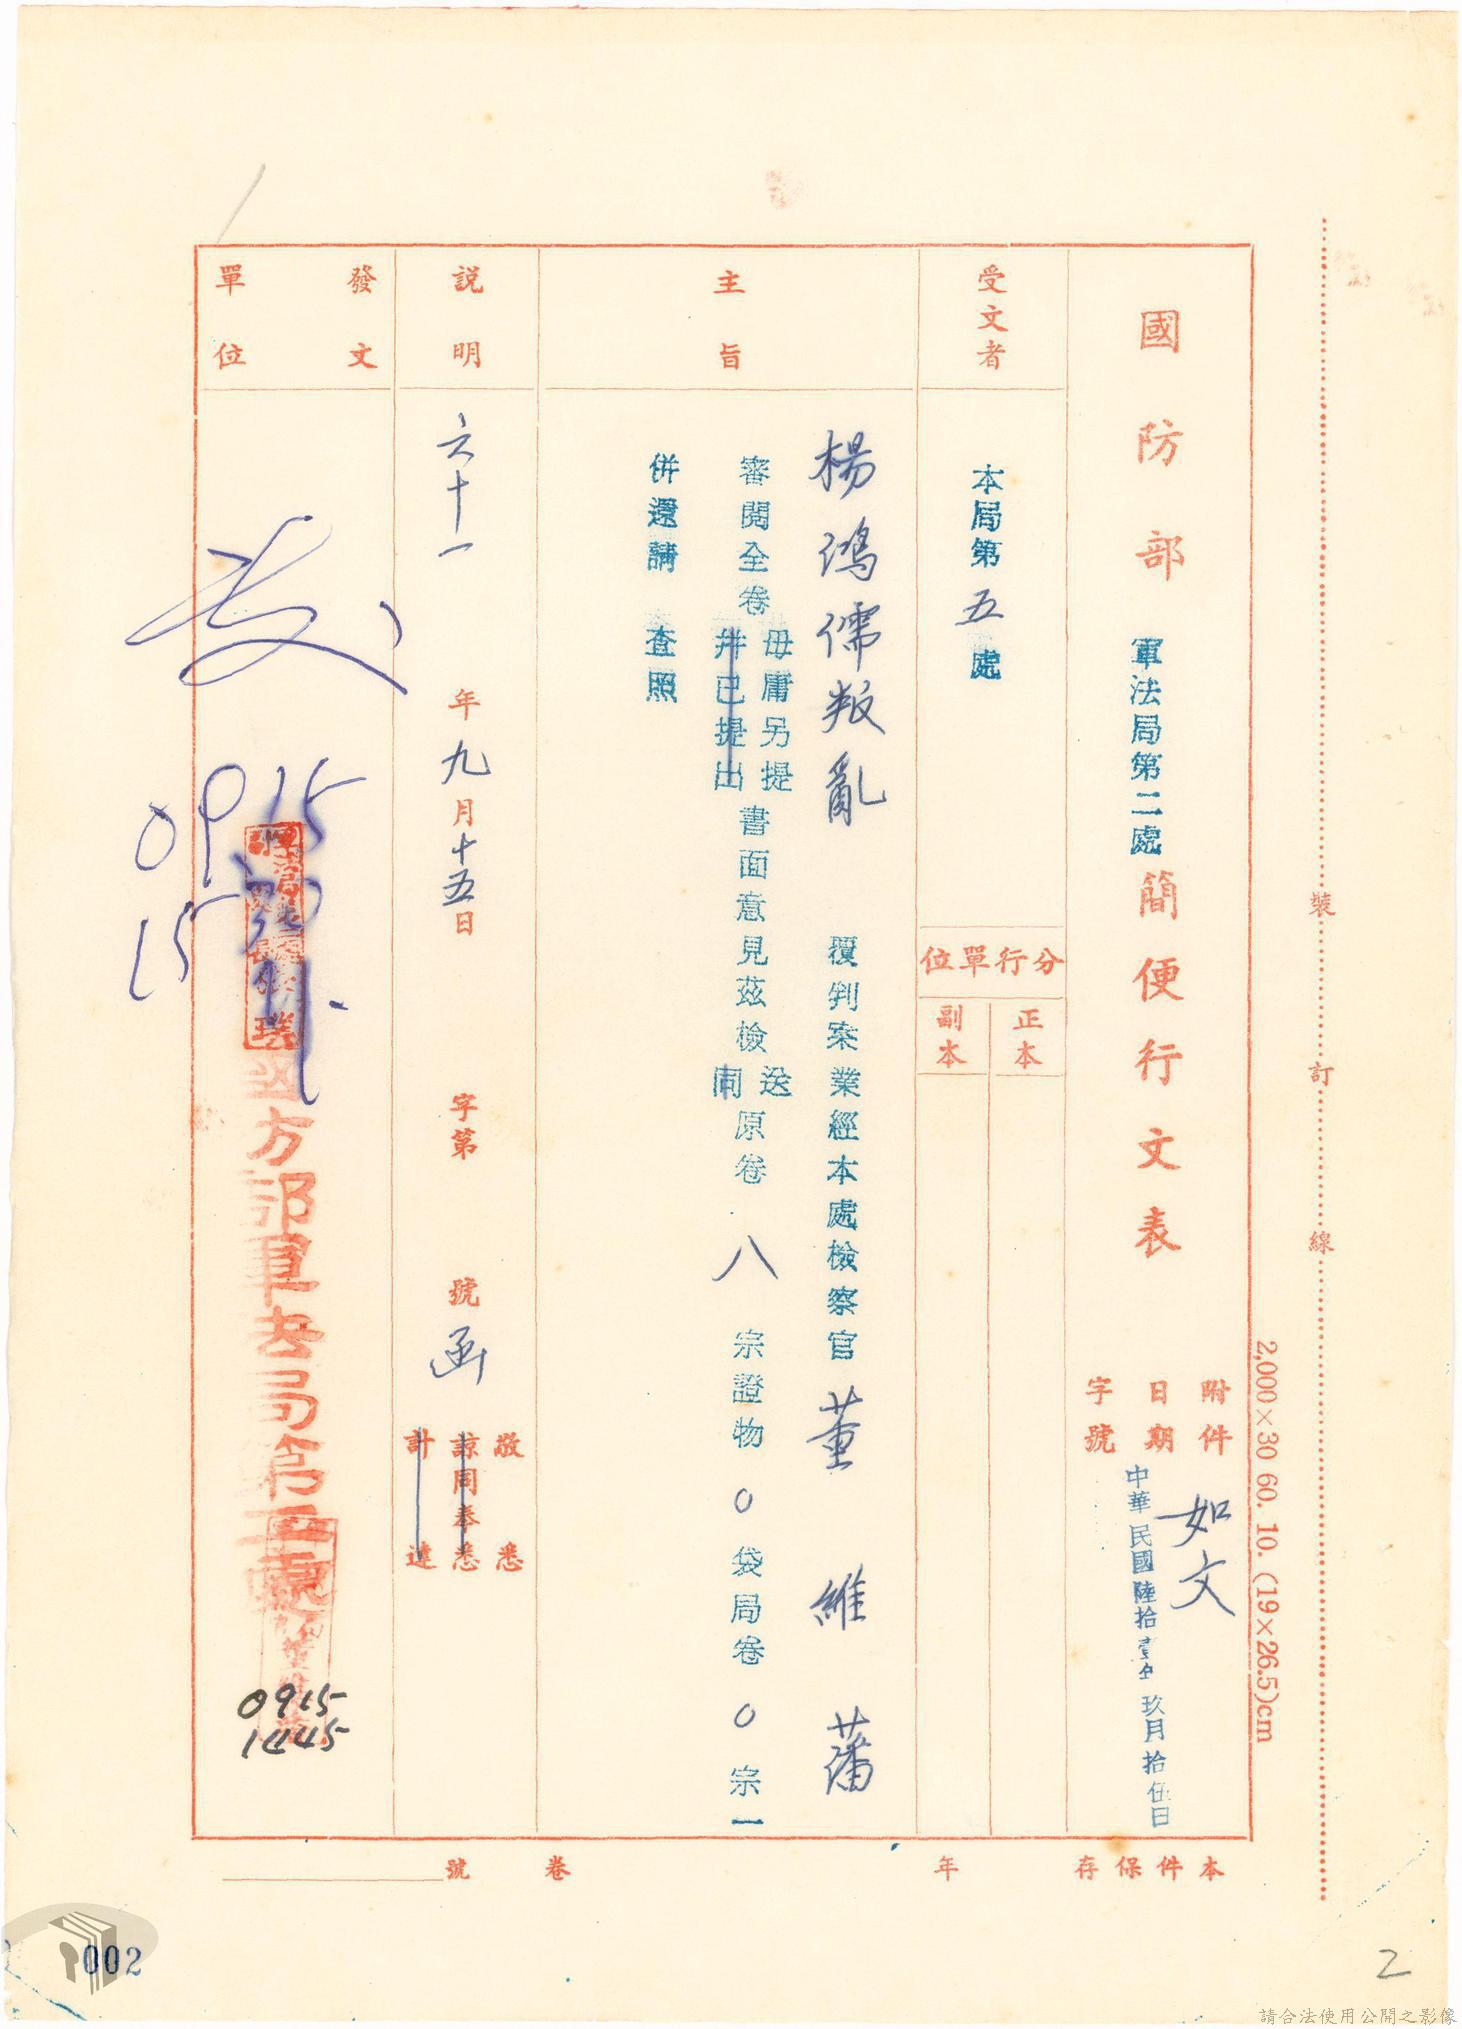 裝訂線
2,000×30 60. 10. (19×26.5)cm
國防部 軍法局第二處 簡便行文表
附件 如文
日期 中華民國陸拾壹年玖月拾伍日
字號
受文者
本局第五處
分行單位
正本
副本
主旨
楊鴻儒叛亂 覆判案業經本處檢察官董維藩
審閱全卷 毋庸另提 書面意見茲檢送原卷八宗證物0袋局卷0宗一
幷已提出
同
併還請 查照
說明
六十一年九月十五日 字第 號函
敬悉
諒同奉悉
計達
發文單位
0915
1530
國防部軍法局第二處
0915
1445
本件保存 年
卷 號
002
2
請合法使用公開之影像